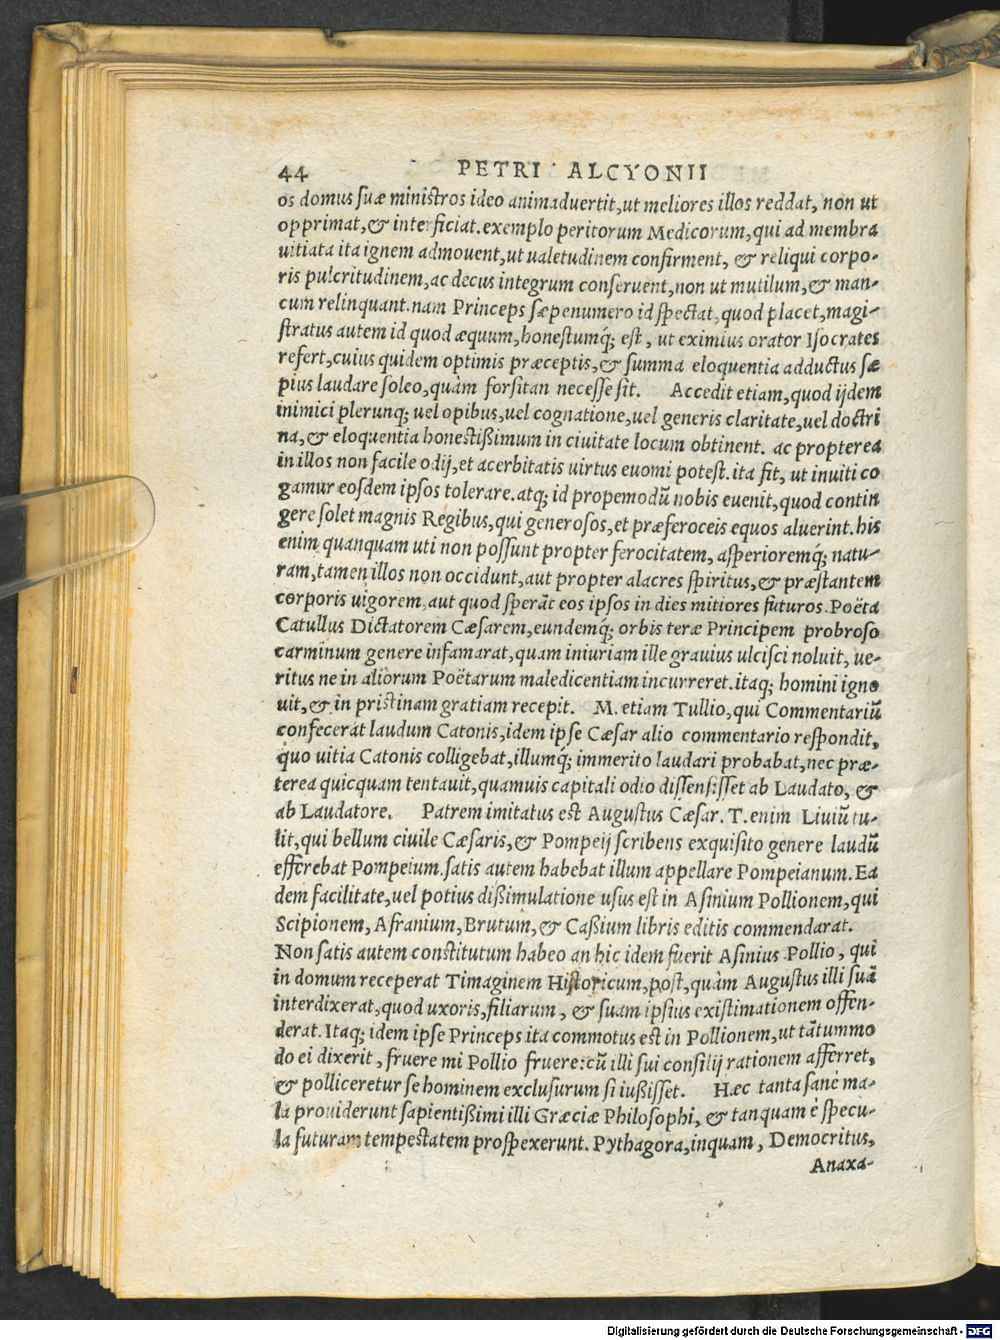 44 PETRI ALCYONII
os domus suæ ministros ideo animaduertit, ut meliores illos reddat, non ut
opprimat, & interficiat. exemplo peritorum Medicorum, qui ad membra
uitiata ita ignem admouent, ut ualetudinem confirment, & reliqui corpo-
ris pulcritudinem, ac decus integrum conseruent, non ut mutilum, & man-
cum relinquant. nam Princeps sæpenumero id spectat, quod placet, magi-
stratus autem id quod æquum, honestumq; est, ut eximius orator Isocrates
refert, cuius quidem optimis præceptis, & summa eloquentia adductus sæ
pius laudare soleo, quàm forsitan necesse sit. Accedit etiam, quod ijdem
inimici plerunq; uel opibus, uel cognatione, uel generis claritate, uel doctri
na, & eloquentia honestißimum in ciuitate locum obtinent. ac propterea
in illos non facile odij, et acerbitatis uirtus euomi potest. ita fit, ut inuiti co
gamur eosdem ipsos tolerare. atq; id propemodū nobis euenit, quod contin
gere solet magnis Regibus, qui generosos, et præferoceis equos aluerint. his
enim quanquam uti non possunt propter ferocitatem, asperioremq; natu-
ram, tamen illos non occidunt, aut propter alacres spiritus, & præstantem
corporis uigorem, aut quod sperāt eos ipsos in dies mitiores futuros. Poëta
Catullus Dictatorem Cæsarem, eundemq; orbis teræ Principem probroso
carminum genere infamarat, quam iniuriam ille grauius ulcisci noluit, ue-
ritus ne in aliorum Poëtarum maledicentiam incurreret. itaq; homini igno
uit, & in pristinam gratiam recepit. M. etiam Tullio, qui Commentariū
confecerat laudum Catonis, idem ipse Cæsar alio commentario respondit,
quo uitia Catonis colligebat, illumq; immerito laudari probabat, nec præ-
terea quicquam tentauit, quamuis capitali odio dissensisset ab Laudato, &
ab Laudatore. Patrem imitatus est Augustus Cæsar. T. enim Liuiū tu-
lit, qui bellum ciuile Cæsaris, & Pompeij scribens exquisito genere laudū
efferebat Pompeium. satis autem habebat illum appellare Pompeianum. Ea
dem facilitate, uel potius dißimulatione usus est in Asinium Pollionem, qui
Scipionem, Afranium, Brutum, & Caßium libris editis commendarat.
Non satis autem constitutum habeo an hic idem fuerit Asinius Pollio, qui
in domum receperat Timaginem Historicum, post, quàm Augustus illi suā
interdixerat, quod uxoris, filiarum, & suam ipsius existimationem offen-
derat. Itaq; idem ipse Princeps ita commotus est in Pollionem, ut tātummo
do ei dixerit, fruere mi Pollio fruere: cū illi sui consilij rationem afferret,
& polliceretur se hominem exclusurum si iußisset. Hæc tanta sanè ma-
la prouiderunt sapientißimi illi Græciæ Philosophi, & tanquam è specu-
la futuram tempestatem prospexerunt. Pythagora, inquam, Democritus,
Anaxa-
Digitalisierung gefördert durch die Deutsche Forschungsgemeinschaft - DFG